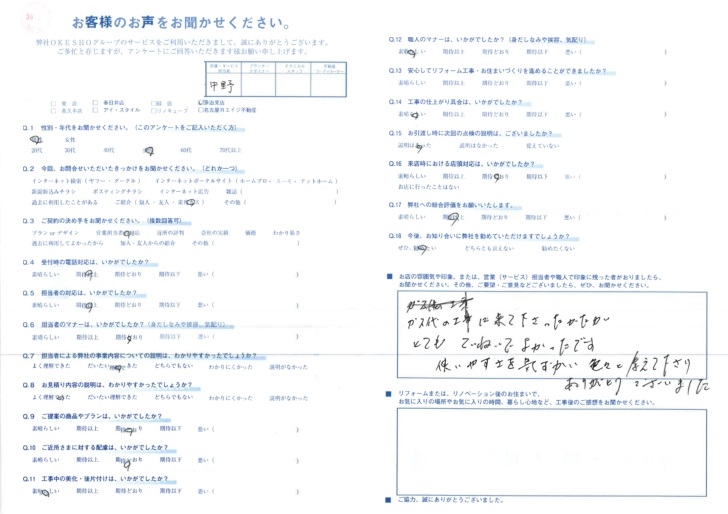 お客様のお声をお聞かせください。
弊社OKESHOグループのサービスをご利用いただきまして、誠にありがとうございます。
ご多忙と存じますが、アンケートにご回答いただきます様お願い申し上げます。
中野
春日井店
アイ・スタイル
リノキューブ
名古屋カエイジ不動産
Q.1 性別・年代をお聞かせください。(このアンケートをご記入いただく方)
女性
20代 30代 40代 60代 70代以上
Q.2 今回、お問合せいただいたきっかけをお聞かせください。(どれか一つ)
新聞折込みチラシ ポスティングチラシ インターネット広告 雑誌( )
過去に利用したことがある その他( )
Q.3 ご契約の決め手をお聞かせください。(複数回答可)
プラン or デザイン 営業担当者 近所の評判 会社の実績 価格 わかり易さ
過去に利用してよかったから 知人・友人からの紹介 その他( )
Q.4 受付時の電話対応は、いかがでしたか?
素晴らしい 期待どおり 期待以下 悪い( )
Q.5 担当者の対応は、いかがでしたか?
素晴らしい 期待どおり 期待以下 悪い( )
Q.6 担当者のマナーは、いかがでしたか?(身だしなみや挨拶、気配り)
素晴らしい 期待以上 期待どおり 期待以下 悪い( )
Q.7 担当者による弊社の事業内容についての説明は、わかりやすかったでしょうか?
よく理解できた だいたい理解できた どちらでもない わかりにくかった 説明がなかった
Q.8 お見積り内容の説明は、わかりやすかったでしょうか?
よく理解できた だいたい理解できた どちらでもない わかりにくかった 説明がなかった
Q.9 ご提案の商品やプランは、いかがでしたか?
素晴らしい 期待以上 期待どおり 期待以下 悪い( )
Q.10 ご近所さまに対する配慮は、いかがでしたか?
素晴らしい 期待以上 期待どおり 期待以下 悪い( )
Q.11 工事中の美化・後片付けは、いかがでしたか?
素晴らしい 期待以上 期待どおり 期待以下 悪い( )
Q.12 職人のマナーは、いかがでしたか?(身だしなみや挨拶、気配り)
素晴らしい 期待以上 期待どおり 期待以下 悪い( )
Q.13 安心してリフォーム工事・お住まいづくりを進めることができましたか?
素晴らしい 期待以上 期待どおり 期待以下 悪い( )
Q.14 工事の仕上がり具合は、いかがでしたか?
素晴らしい 期待以上 期待どおり 期待以下 悪い( )
Q.15 お引渡し時に次回の点検の説明は、ございましたか?
説明はあった 説明はなかった 覚えていない
Q.16 来店時における店頭対応は、いかがでしたか?
素晴らしい 期待以上 期待どおり 期待以下 悪い( )
お店に行ったことはない
Q.17 弊社への総合評価をお願いいたします。
素晴らしい 期待以上 期待どおり 期待以下 悪い( )
Q.18 今後、お知り合いに弊社を勧めていただけますでしょうか?
ぜひ、勧めたい どちらとも言えない 勧めたくない
■ お店の雰囲気や印象、または、営業(サービス)担当者や職人で印象に残った者がおりましたら、
お聞かせください。その他、ご要望・ご意見などございましたら、ぜひ、お聞かせください。
ガス代の工事に来て下さったかたが
とても ていねいで よかったです
使いやすさを 色々と 考えて下さり
ありがとう ございました
■ リフォームまたは、リノベーション後のお住まいで、
お気に入りの場所やお気に入りの時間、暮らし心地など、工事後のご感想をお聞かせください。
■ ご協力、誠にありがとうございました。